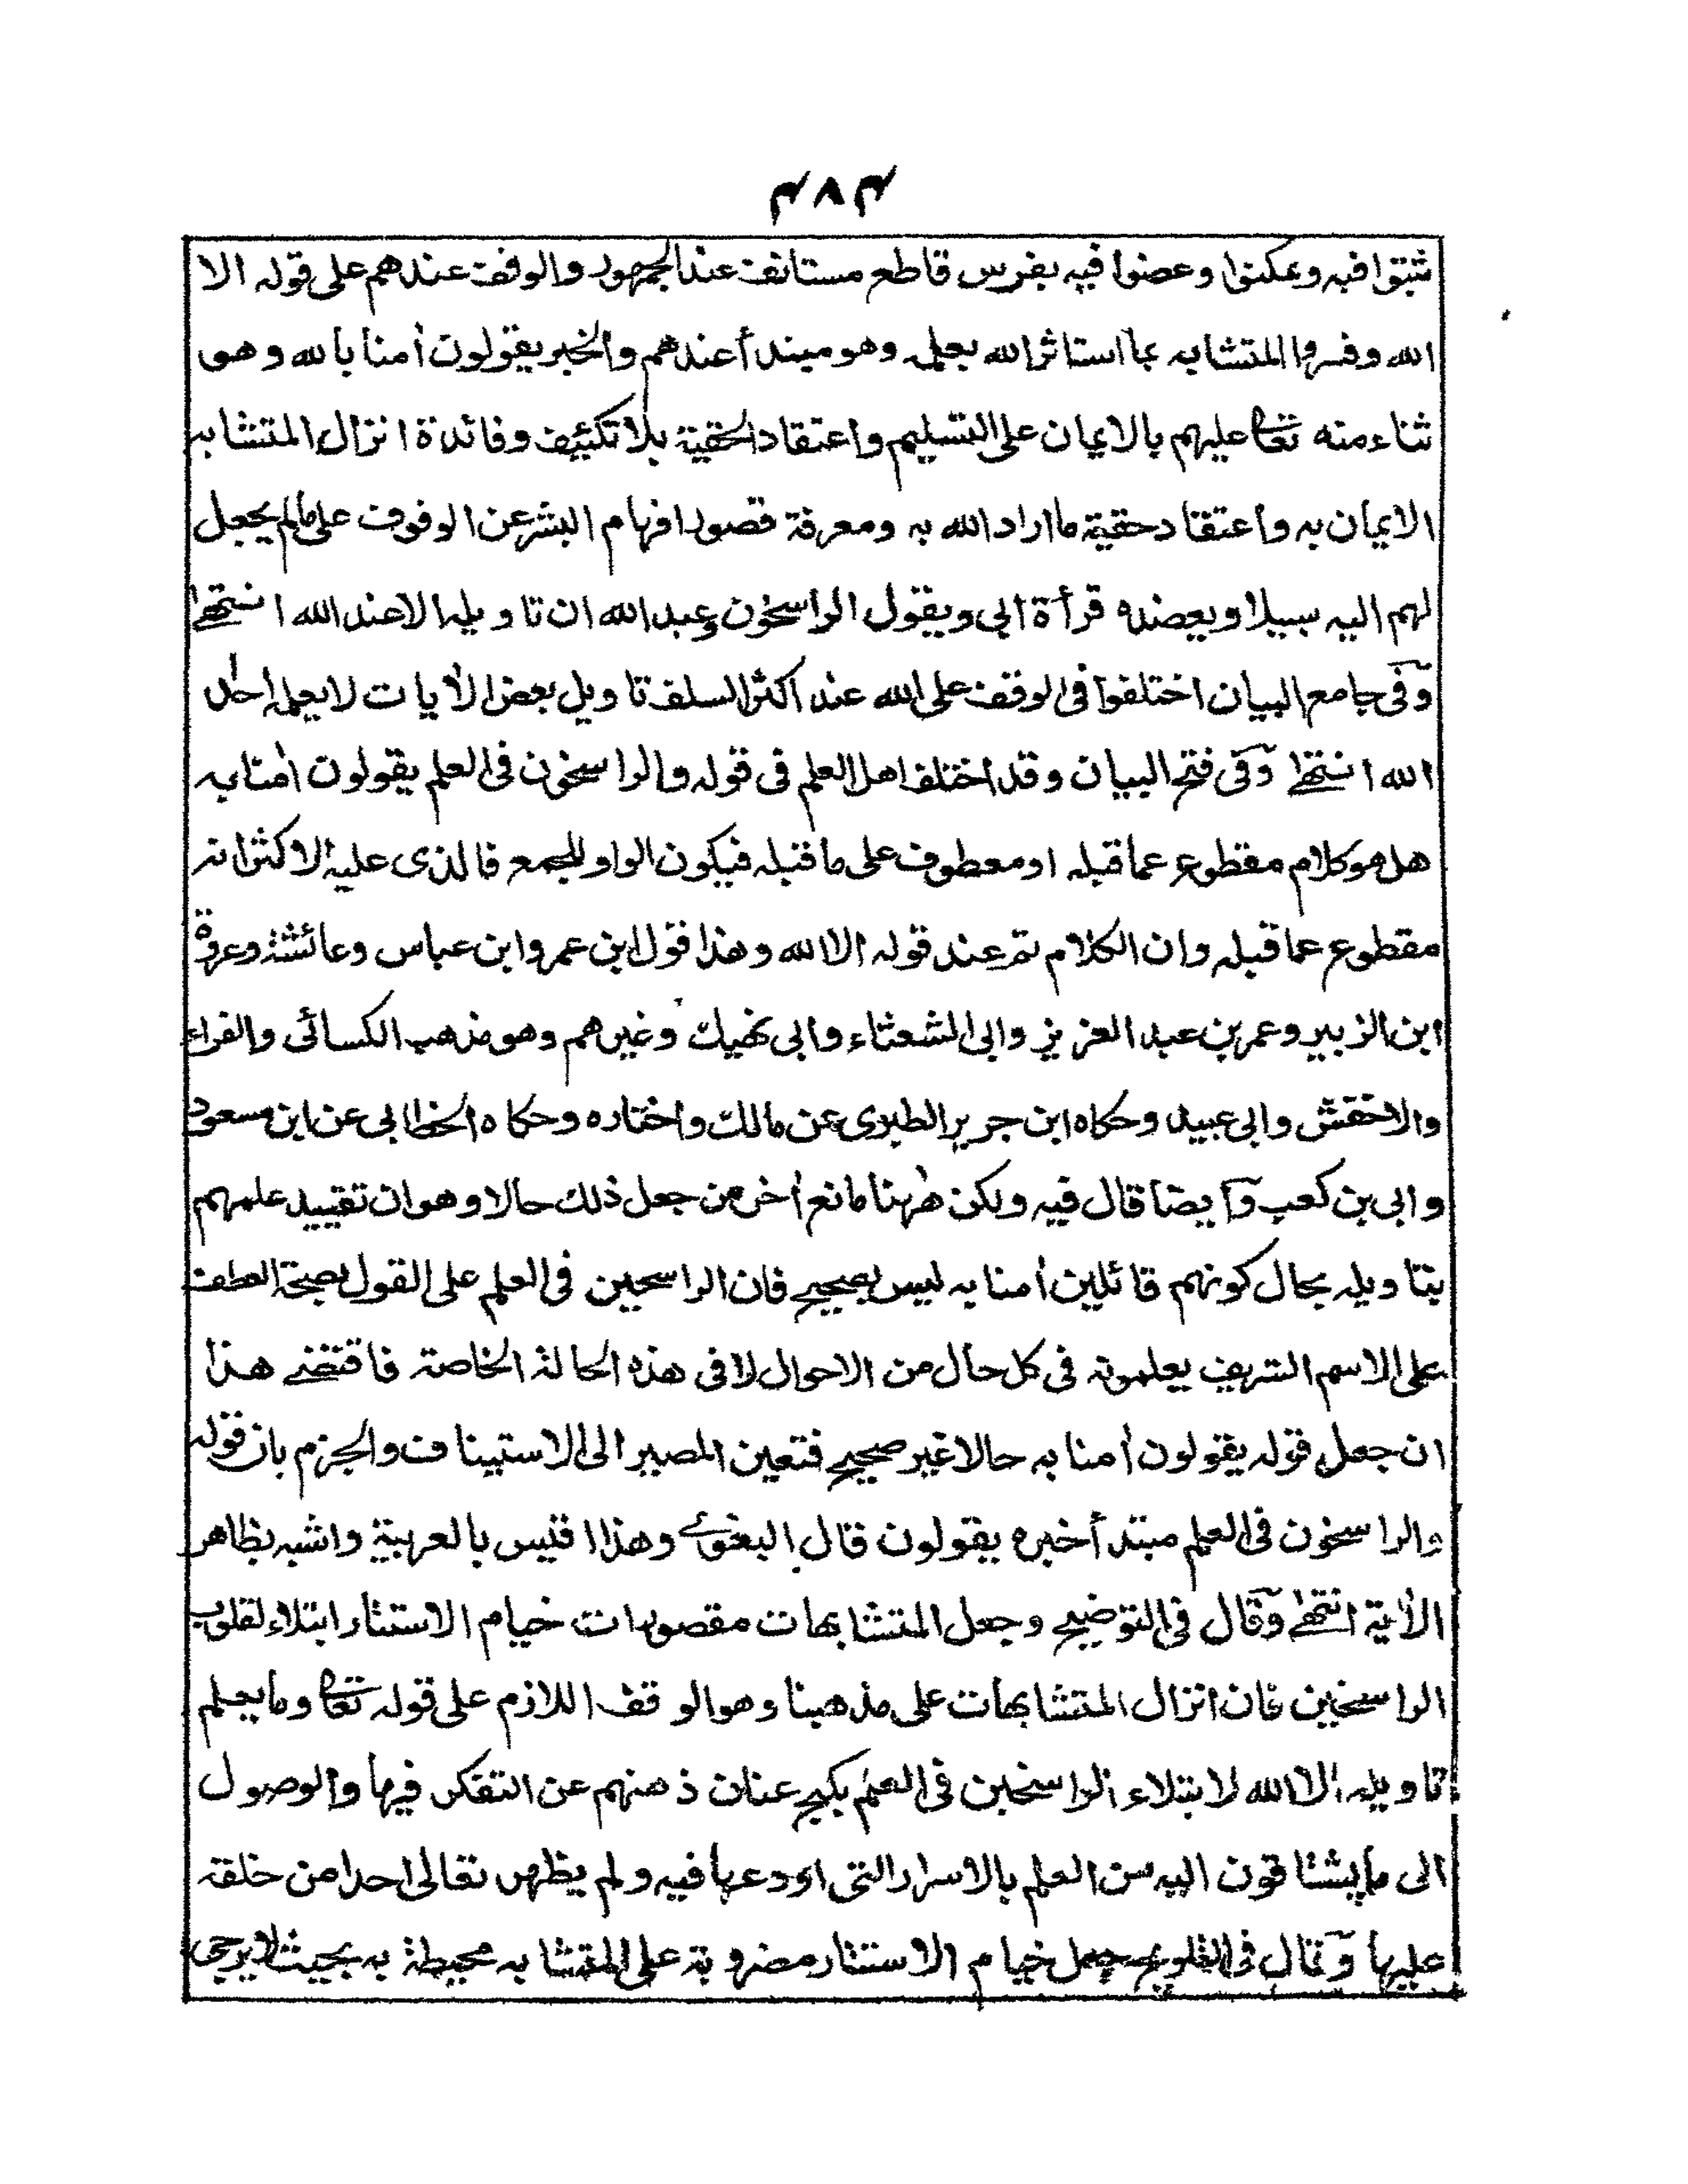 ۴۸۴
ثبتوا فيه وتمكنوا وعضوا فيه بضرس قاطع مستانف عند الجمهور والوقف عندهم على قوله الا
الله وفسروا المتشابه بما استاثر الله بعلمه وهو مبتدأ عندهم والخبر يقولون اٰمنا بالله وهو
ثناء منه تعالى عليهم بالايمان على التسليم واعتقاد الحقية بلا تكييف وفائدة انزال المتشابه
الايمان به واعتقاد حقية ما اراد الله به ومعرفة قصور افهام البشر عن الوقوف على مالم يجعل
لهم اليه سبيلا ويعضده قرأة ابى ويقول الراسخون وعبد الله ان تاويله الا عند الله انتهى
وفى جامع البيان اختلفوا فى الوقف على الله عند اكثر السلف تاويل بعض الاٰيات لا يعلمه احد الا
الله انتهى وفى فتح البيان وقد اختلف اهل العلم فى قوله والراسخون فى العلم يقولون اٰمنا به
هل هو كلام مقطوع عما قبله او معطوف على ما قبله فيكون الواو للجمع فالذى عليه الاكثر انه
مقطوع عما قبله وان الكلام تم عند قوله الا الله وهذا قول ابن عمر وابن عباس وعائشة وعروة
ابن الزبير وعمر بن عبد العزيز وابى الشعثاء وابى نهيك وغيرهم وهو مذهب الكسائى والفراء
والاخفش وابى عبيد وحكاه ابن جرير الطبرى عن مالك واختاره وحكاه الخطابى عن ابن مسعود
وابى بن كعب وايضا قال فيه ولكن هٰهنا مانع اٰخر من جعل ذلك حالا وهو ان تقييد علمهم
بتاويله بحال كونهم قائلين اٰمنا به ليس بصحيح فان الراسخين فى العلم على القول بصحة العطف
على الاسم الشريف يعلمونه فى كل حال من الاحوال لا فى هذه الحالة الخاصة فاقتضى هذا
ان جعل قوله يقولون اٰمنا به حالا غير صحيح فتعين المصير الى الاستيناف والجزم بان قوله
والراسخون فى العلم مبتدأ خبره يقولون قال البغوى وهذا اقيس بالعربية واشبه بظاهر
الاٰية انتهى وقال فى التوضيح وجعل المتشابهات مقصورات خيام الاستتار ابتلاء لقلوب
الراسخين فان انزال المتشابهات على مذهبنا وهو الوقف اللازم على قوله تعالى وما يعلم
تاويله الا الله لابتلاء الراسخين فى العلم بكبح عنان ذهنهم عن التفكر فيها والوصول
الى ما يشتاقون اليه من العلم بالاسرار التى اودعها فيه ولم يظهر تعالى احدا من خلقه
عليها وقال فى التلويح جعل خيام الاستتار مضروبة على المتشابه محيطة به بحيث لا يرجى